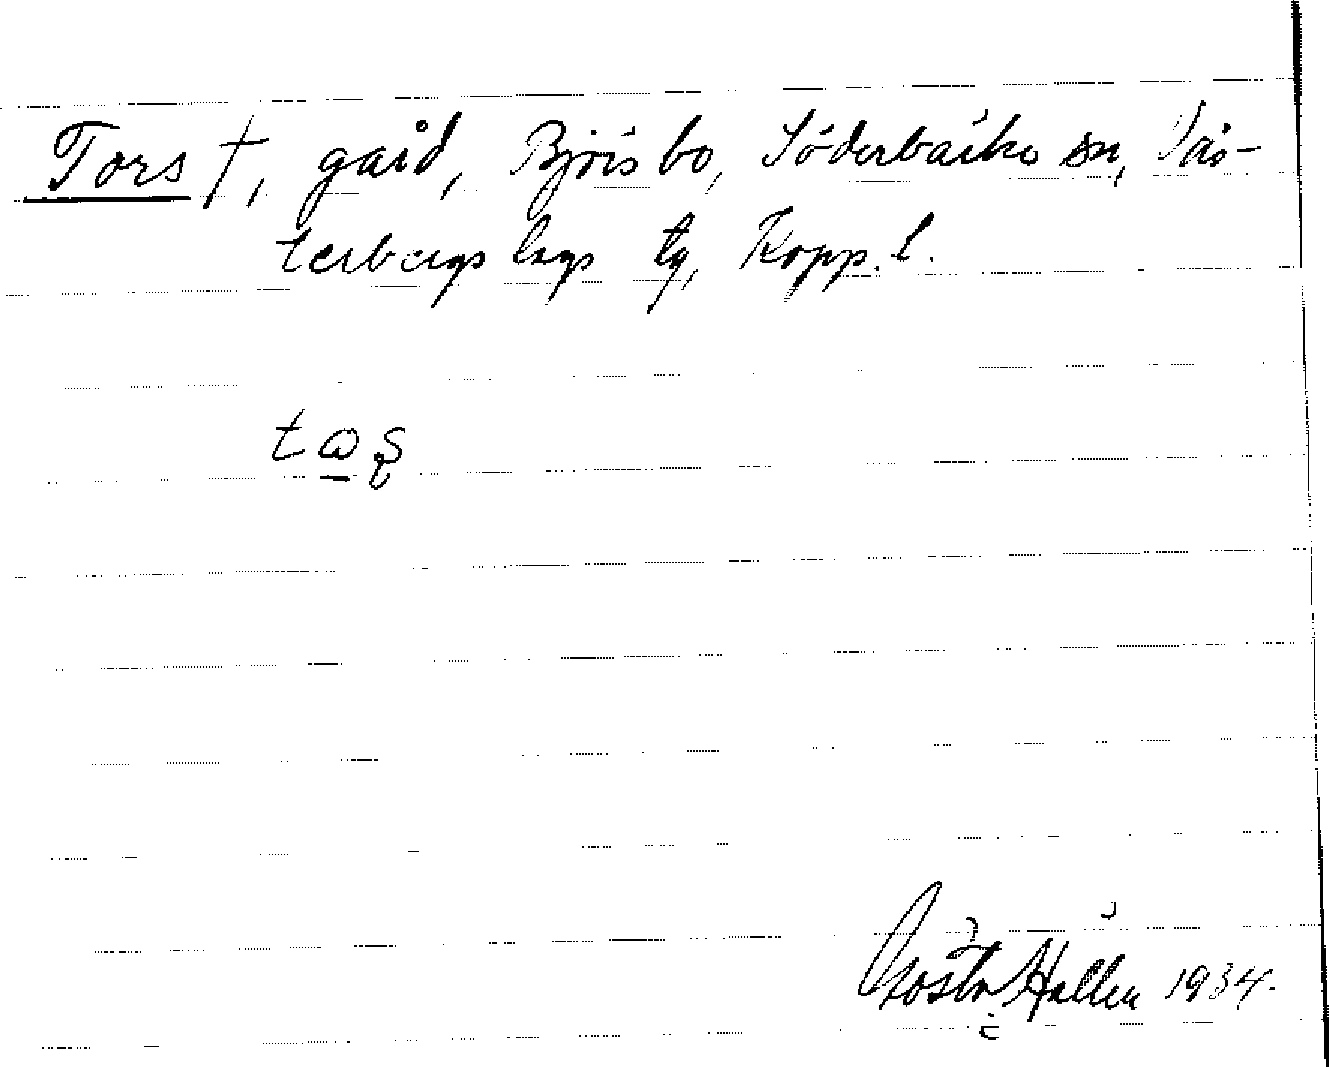 Tors †, gård, Björsbo, Söderbärke sn, Väs-
terbergslags tg, Kopp. l.
Gösta Hallén 1934.